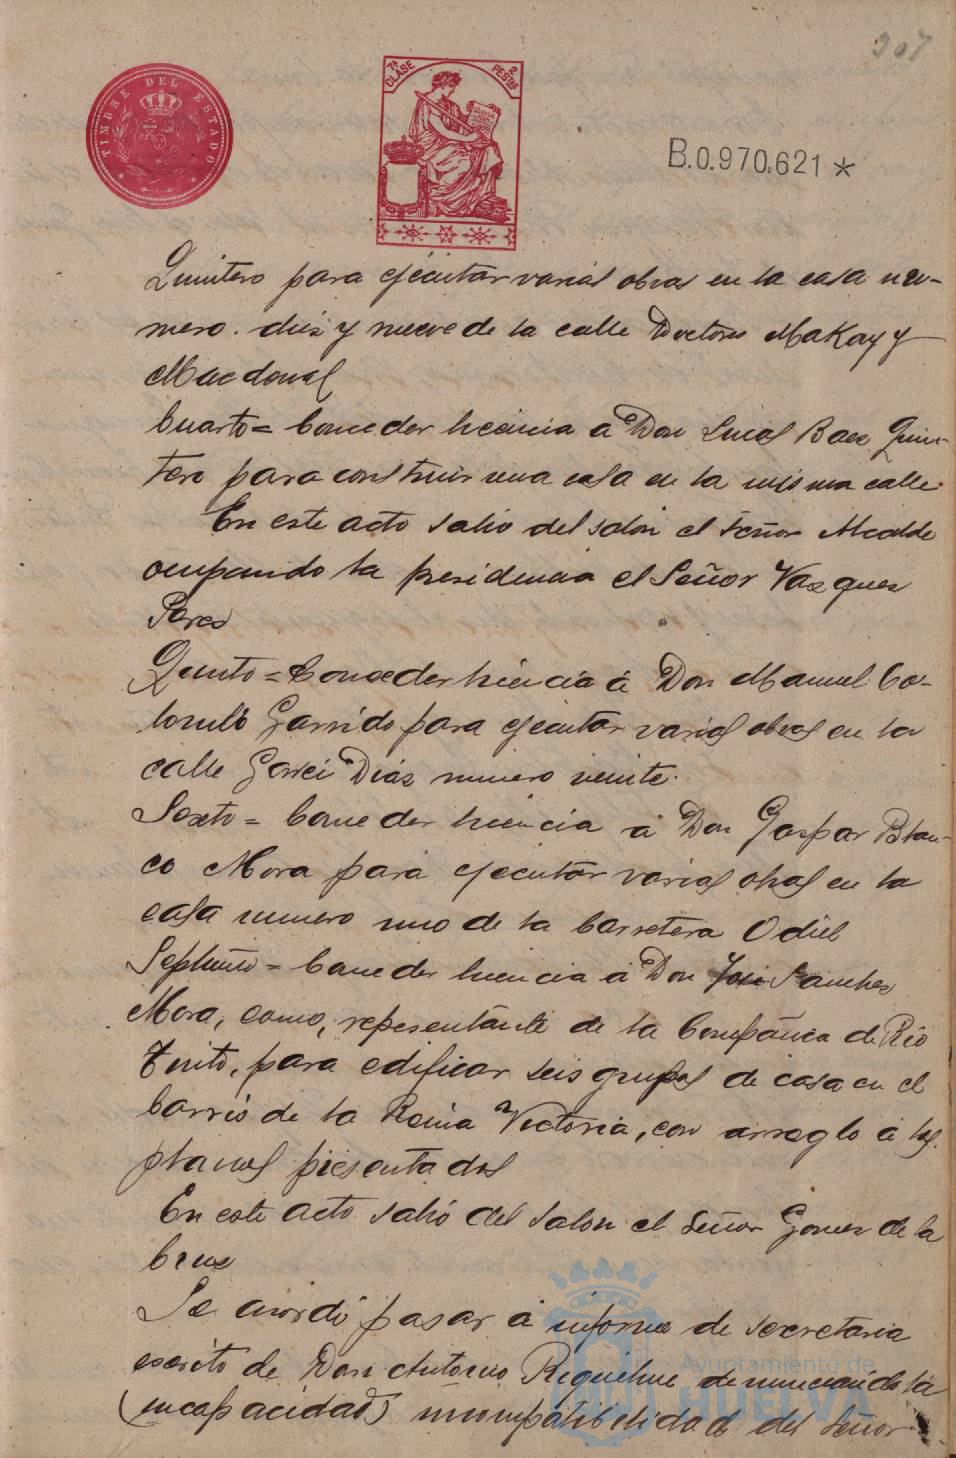 307
TIMBRE DEL ESTADO
7ª CLASE
2 PESTAS
B.0.970.621 *
Quintero para ejecutar varias obras en la casa nu-
mero. diez y nueve de la calle Doctores MaKay y
Macdonal
Cuarto = Conceder licencia a Don Lucas Baez Quin-
tero para construir una casa en la misma calle.
En este acto salió del salón el Señor Alcalde
ocupando la presidencia el Señor Vazquez
Perez
Quinto = Conceder licencia á Don Manuel Co-
Garrido para ejecutar varias obras en la
calle Garci Diaz numero veinte.
Sexto = Conceder licencia á Don Gaspar Blan-
co Mora para ejecutar varias obras en la
casa numero uno de la Carretera Odiel
Septimo = Conceder licencia á Don José Sanchez
Mora, como, representante de la Compañia de Rio
Tinto, para edificar seis grupos de casa en el
barrio de la Reina Victoria, con arreglo á los
planos presentados
En este acto salió del salon el Señor Gomez de la
Cruz
Se acordó pasar á informe de secretaria
escrito de Don Antonio Riquelme denunciando la
(incapacidad) incompatibilidad del Señor
Ayuntamiento de
HUELVA